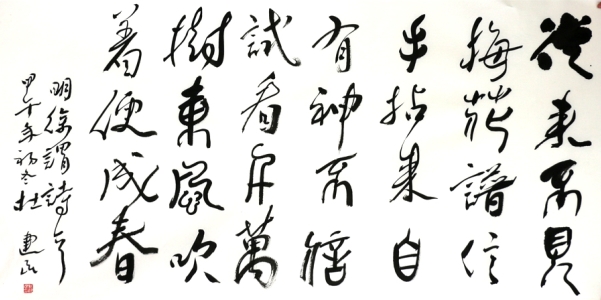 從来不見
梅花譜信
手拈来自
有神不信
試看千萬
樹東風吹
着便成春
明徐謂詩
甲午年初冬杜